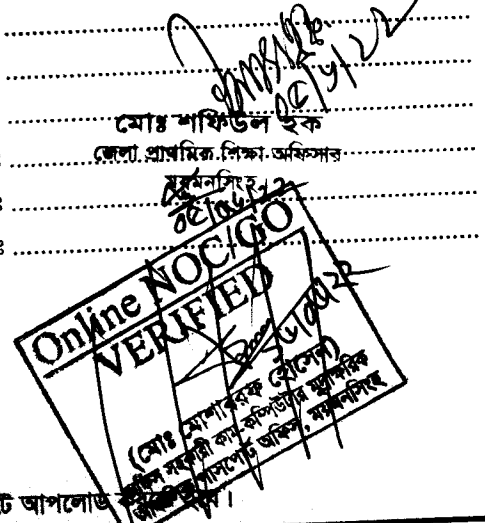 মোঃ শফিউল হক
জেলা প্রাথমিক শিক্ষা অফিসার
ময়মনসিংহ
Online NOC/GO
VERIFIED
(মোঃ মোশাররফ হোসেন)
অফিস সহকারী কাম-কম্পিউটার মুদ্রাক্ষরিক
পাসপোর্ট অফিস, ময়মনসিংহ
আপলোড